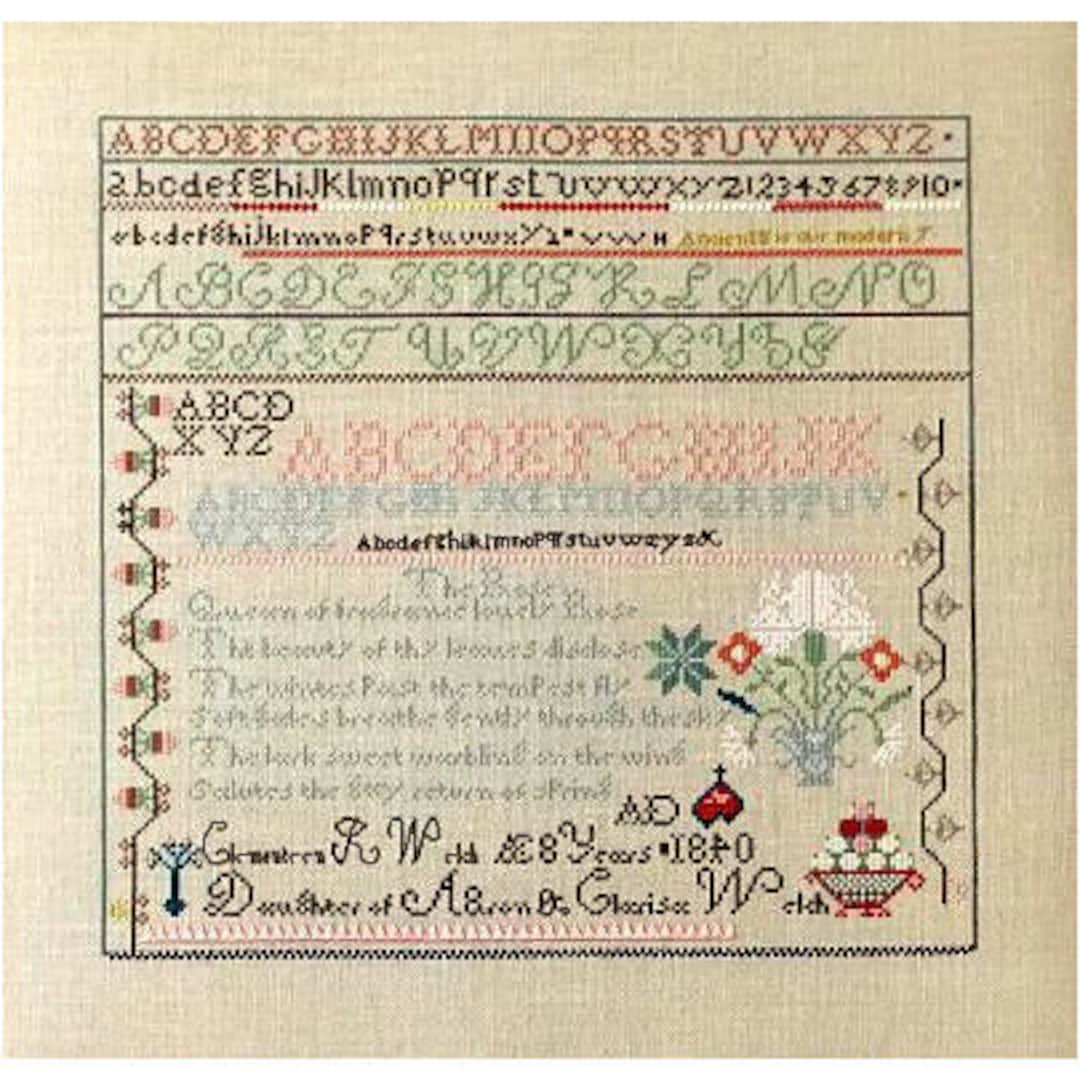 ABCDEFGHIJKLMNOPQRSTUVWXYZ
abcdefghiJKlmnoPqrstuvwxyz12345678910
abcdefghijklmnoPqrstuvwxyz vvv H Ancient is our modern
ABCDEFGHIJKLMNO
PQRSTUVWXYZ&
ABCD
XYZ ABCDEFGHIJK
ABCDEFGHIJKLMNOPQRSTUV
WXYZ
AbcdefghiklmnoPqrstuvwxyz&
The Rose
Queen of fragrance lovely Rose
The beauty of thy leaves disclose
The winters Past the temPest fly
Soft Gales breathe Gently through the sky
The lark sweet warbling on the wing
Salutes the Gay return of sPring
AD
Clementeen R Welch AE 8 Years 1840
Daughter of Aaron & Clarisa Welch